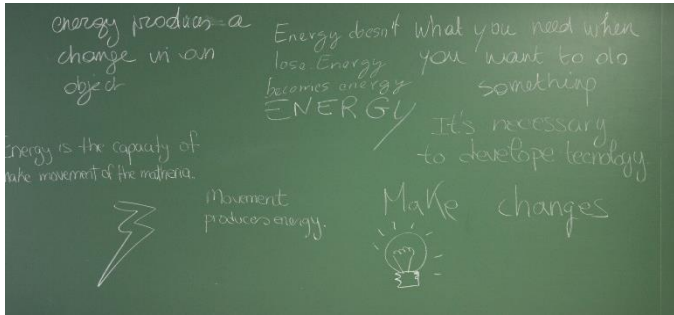 energy produces a
change in an
object
Energy doesn't
lose. Energy
becomes energy
ENERGY
What you need when
you want to do
something
It's necessary
to develope tecnology.
Energy is the capacity of
make movement of the matheria.
Movement
produces energy.
Make changes